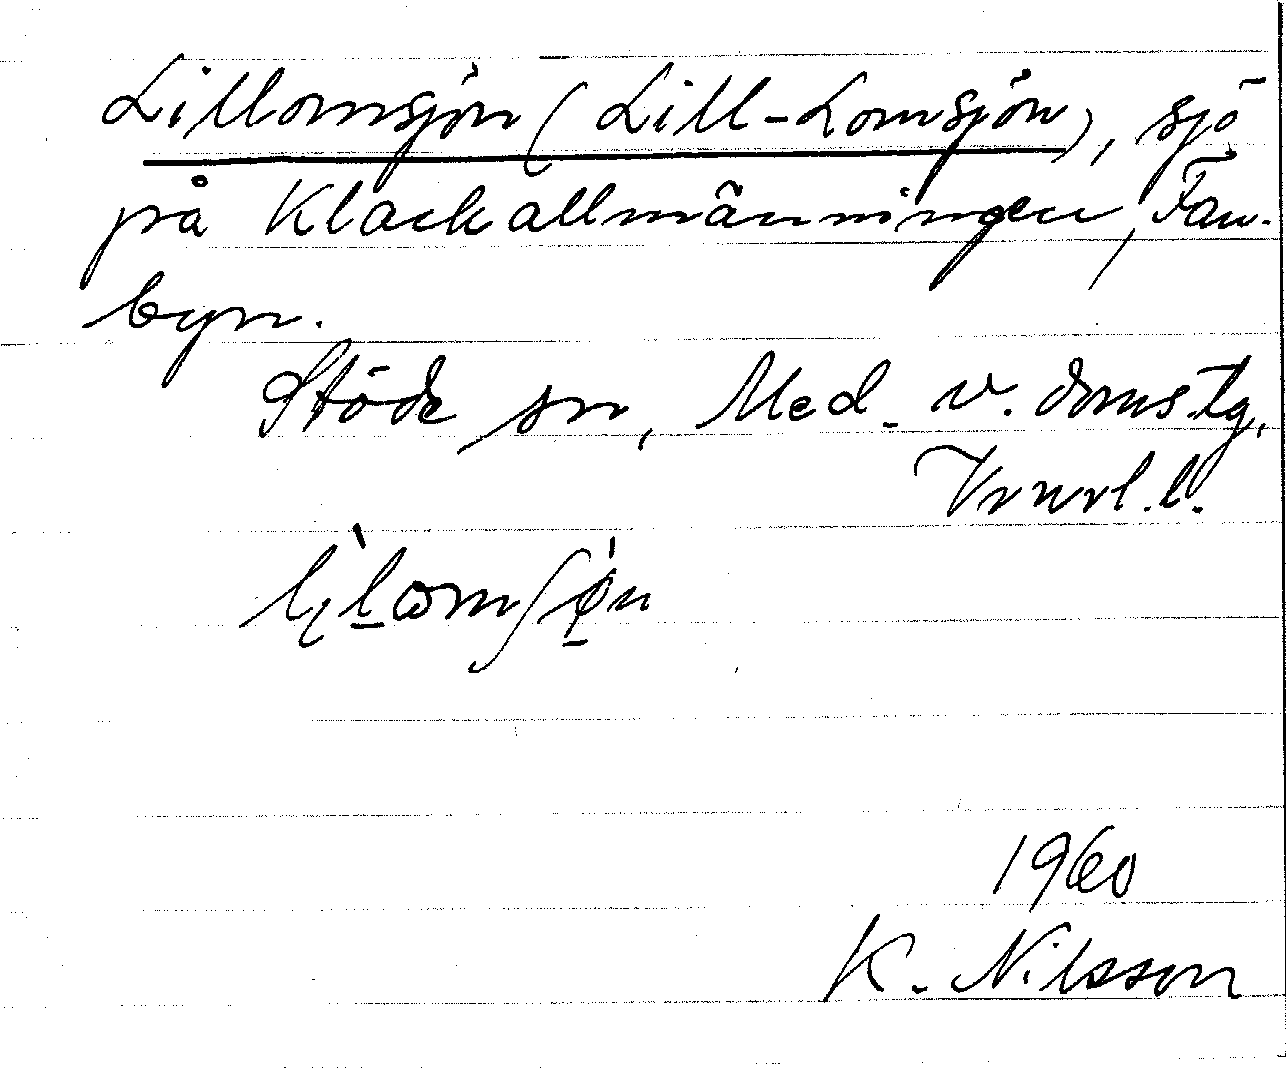 Lillomsjön (Lill-Lomsjön), sjö
på Klackallmänningen, Fan-
byn.
Stöde sn, Med. v. domstg,
Vrnrl. l.
1960
K. Nilsson